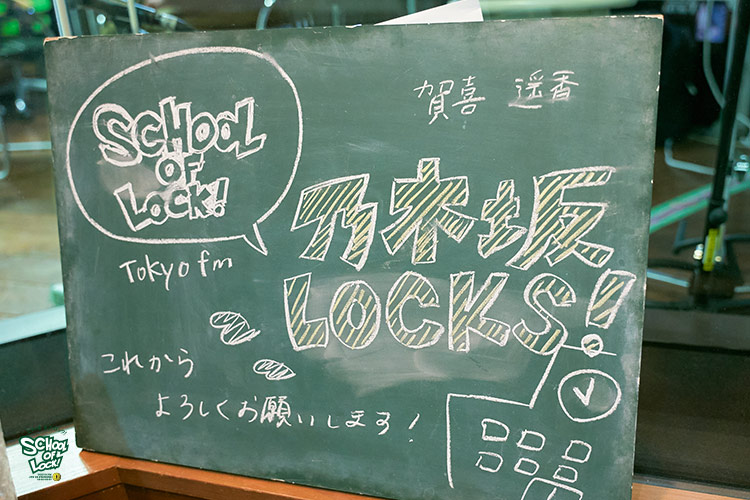 SCHOOL
OF
LOCK!
TOKYO fm
賀喜 遥香
乃木坂
LOCKS!
これから
よろしくお願いします!
SCHOOL
OF
LOCK!